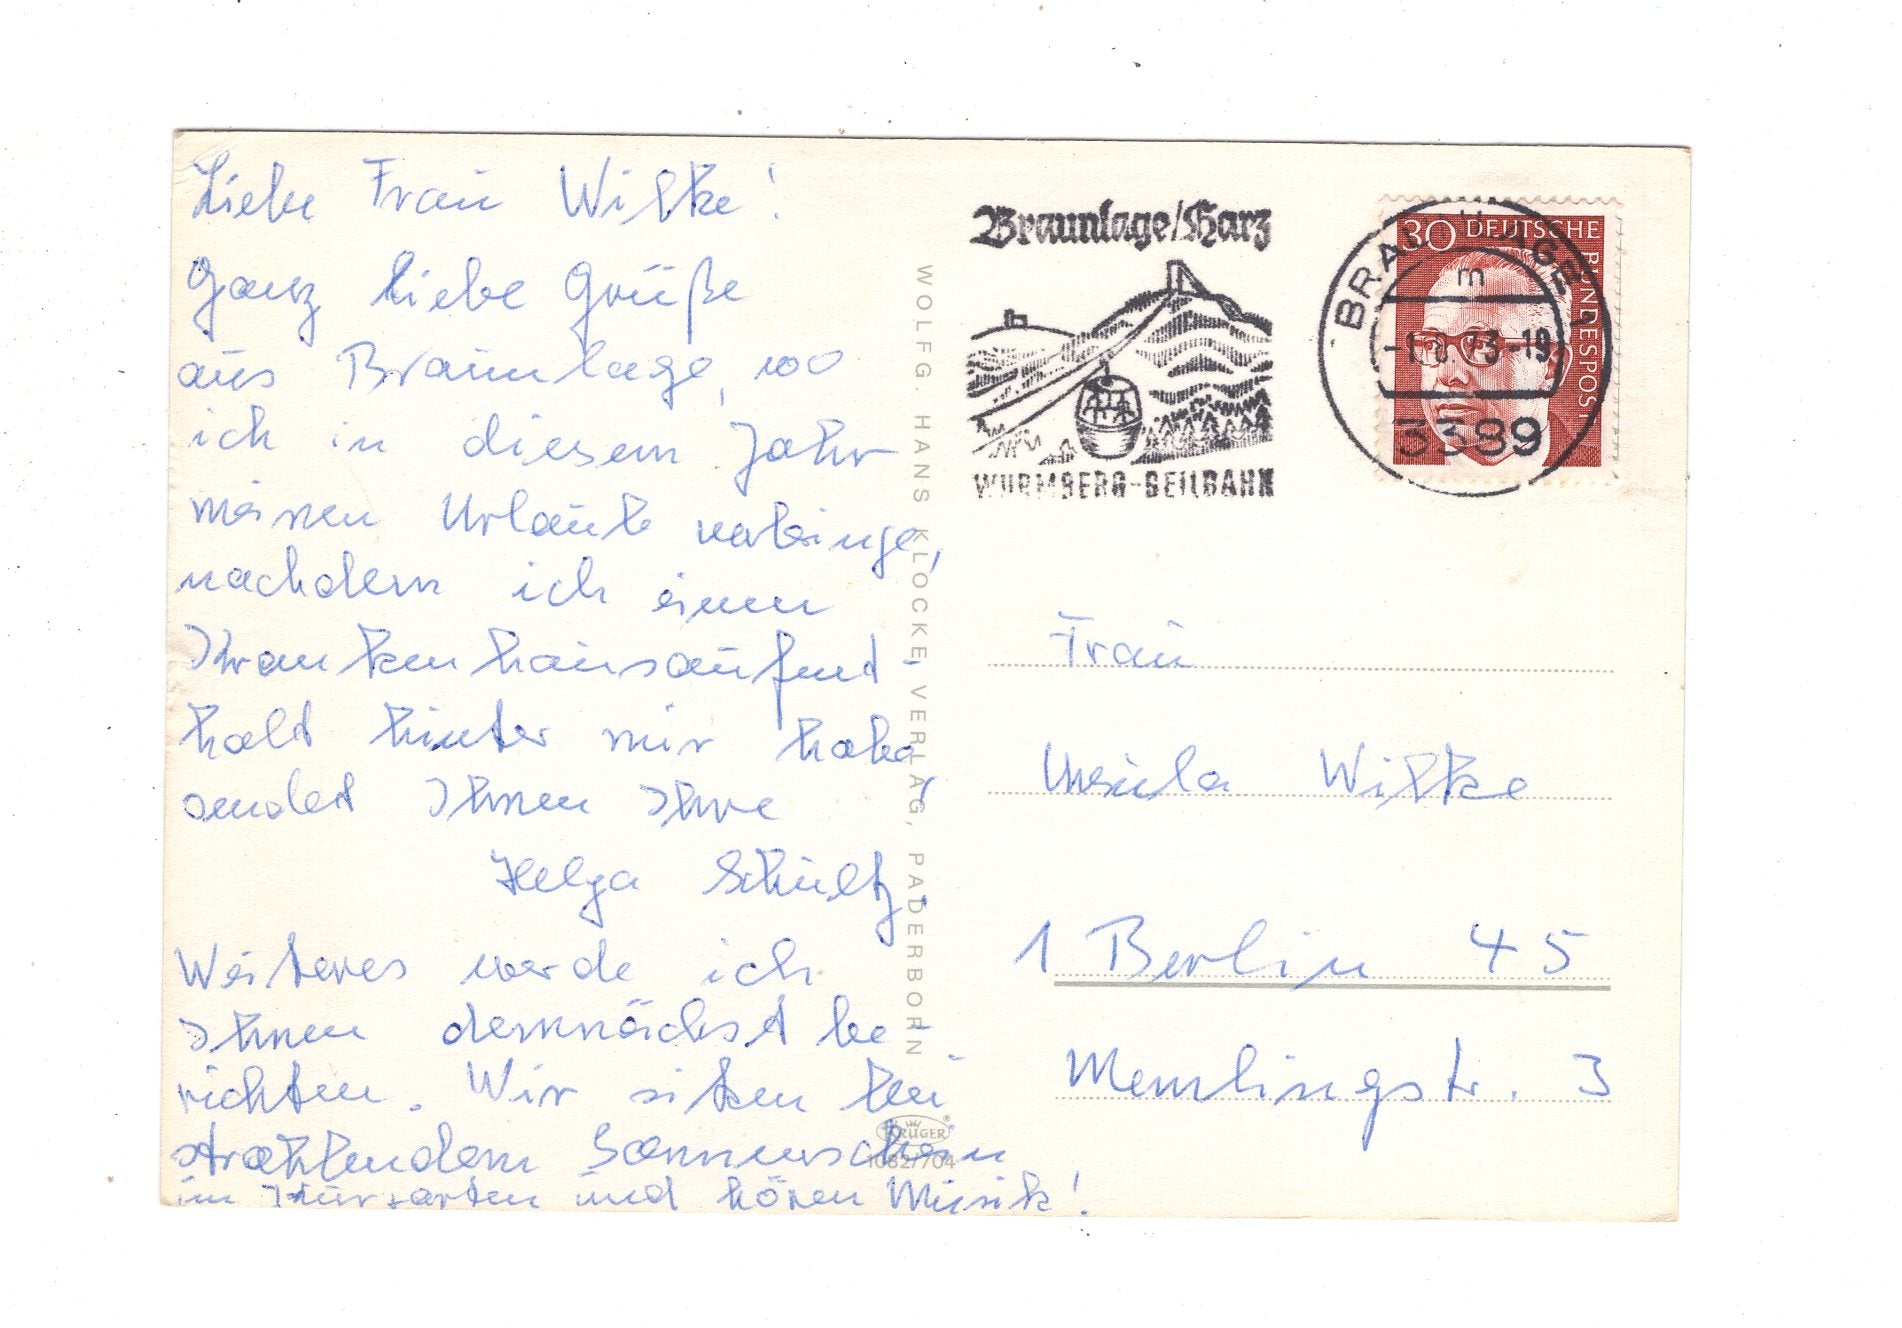 Liebe Frau Wilke!
Ganz liebe Grüße
aus Braunlage, wo
ich in diesem Jahr
meinen Urlaub verbringe,
nachdem ich einen
Krankenhausaufent-
halt hinter mir habe,
sendet Ihnen Ihre
Helga Schultz.
Weiteres werde ich
Ihnen demnächst be-
richten. Wir sitzen bei
strahlendem Sonnenschein
im Kurgarten und hören Musik!
WOLFG. HANS KLOCKE VERLAG, PADERBORN
KRÜGER
1082/704
Braunlage/Harz
WURMBERG-SEILBAHN
30 DEUTSCHE BUNDESPOST
BRAUNLAGE 1
m
73-19
3389
Frau
Ursula Wilke
1 Berlin 45
Memlingstr. 3